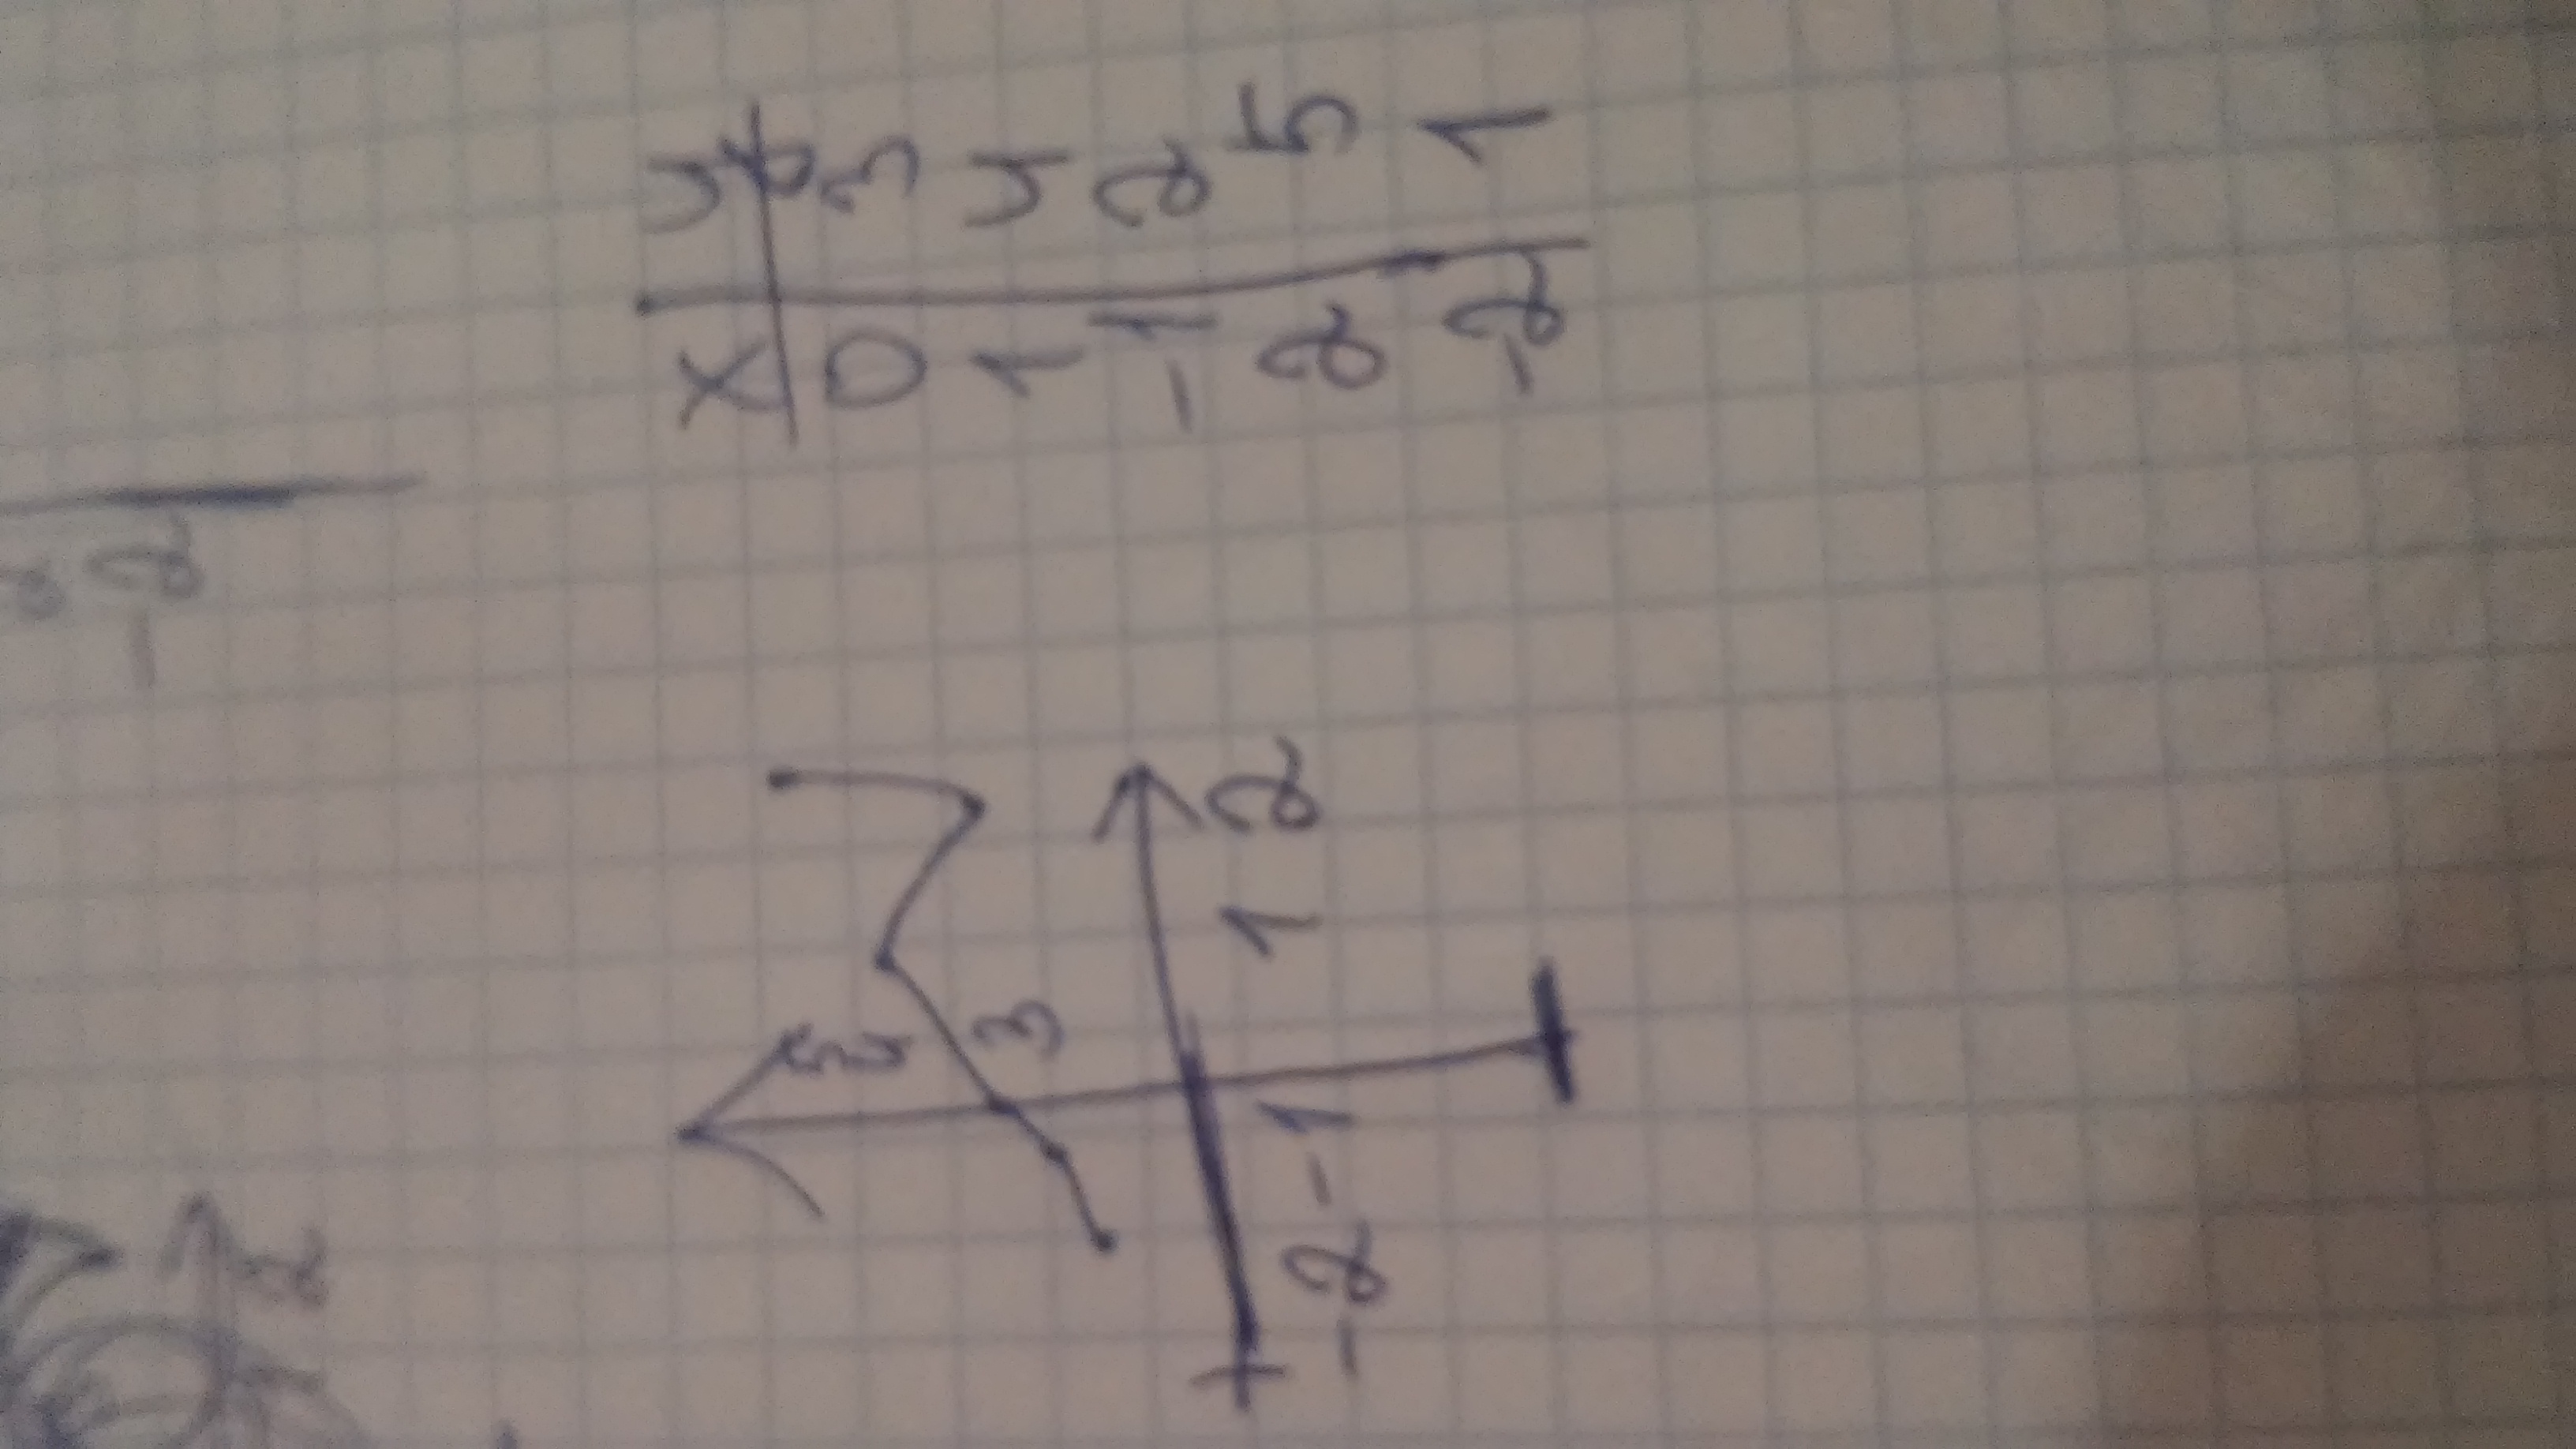 -2
5
4
3
-2 -1 1 2
x y
0 3
1 4
-1 2
2 5
-2 1